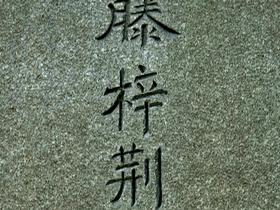 藤梓荆